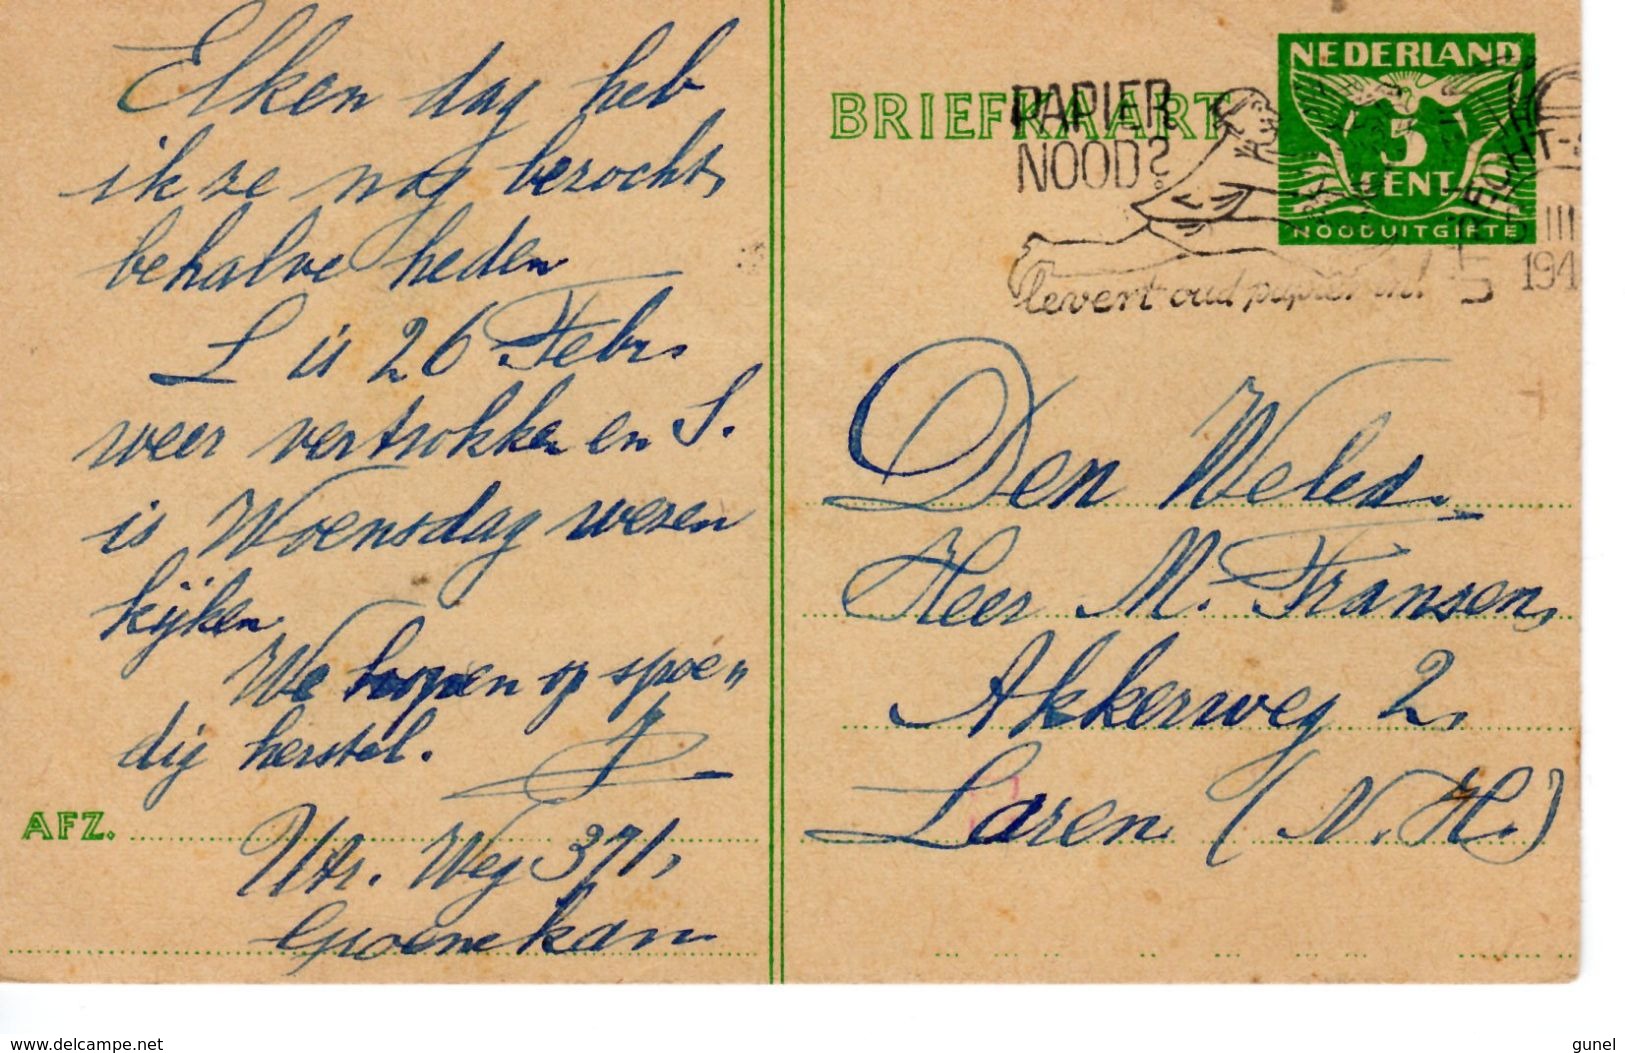 Elken dag heb
ik ze nog bezocht,
behalve heden
L is 26 Febr.
weer vertrokken en S.
is Woensdag wezen
kijken
We hopen op spoe„
dig herstel.
AFZ.
Utr. Weg 371,
Groenekan
BRIEFKAART
PAPIER
NOOD?
levert oud papier in!
NEDERLAND
5
CENT
NOODUITGIFTE
III
194
Den Weled.
Heer M. Fransen,
Akkerweg 2,
Laren (N.H.)
www.delcampe.net
gunel